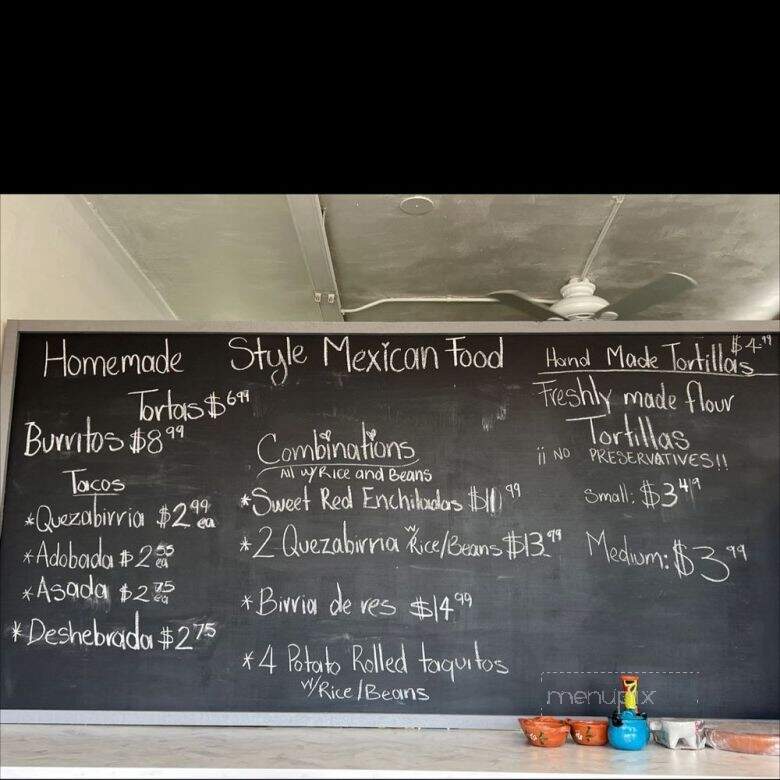 Homemade Style Mexican Food
Tortas $6.99
Burritos $8.99
Tacos
*Quezabirria $2.99 ea
*Adobada $2.55 ea
*Asada $2.75 ea
*Deshebrada $2.75
Combinations
All w/Rice and Beans
*Sweet Red Enchiladas $11.99
*2 Quezabirria w/ Rice/Beans $13.99
*Birria de res $14.99
*4 Potato Rolled taquitos
w/Rice/Beans
Hand Made Tortillas $4.99
Freshly made flour
Tortillas
¡¡ NO PRESERVATIVES!!
Small: $3.49
Medium: $3.99
menupix